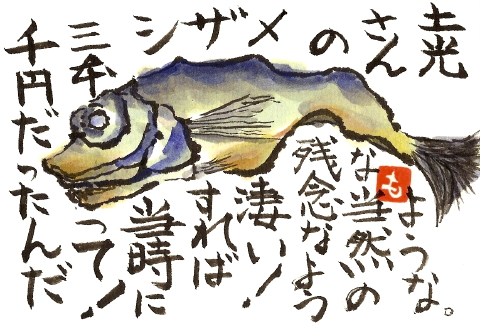 土光
さん
の
メ
ザ
シ
三本
千円だったんだ
って！
当時に
すれば
凄い！
残念なよう
な当然の
ような。
も